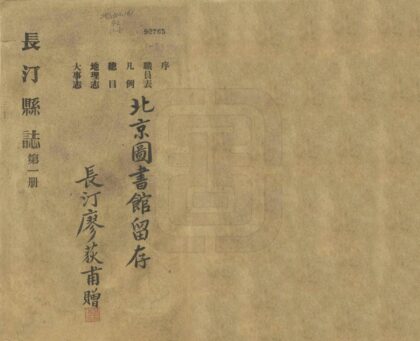 92765
序
職員表
凡例
總目
地理志
大事志
北京圖書館留存
長汀廖荻甫贈
長汀縣誌 第一册